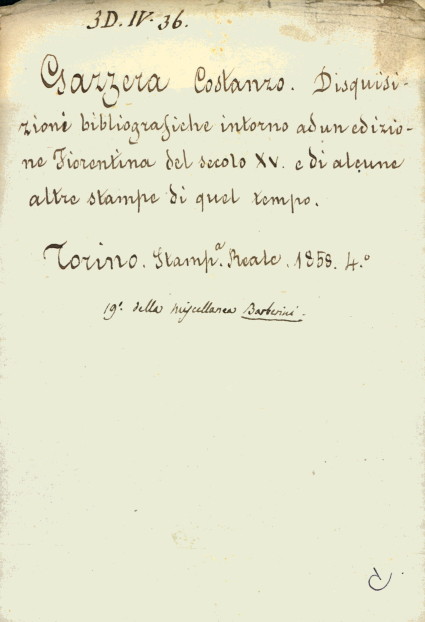 3D. IV. 36.
Gazzera Costanzo. Disquisi-
zioni bibliografiche intorno ad un edizio-
ne Fiorentina del secolo XV. e di alcune
altre stampe di quel tempo.
Torino. Stamp.ª Reale. 1858. 4.º
19ª della miscellanea Barberini.